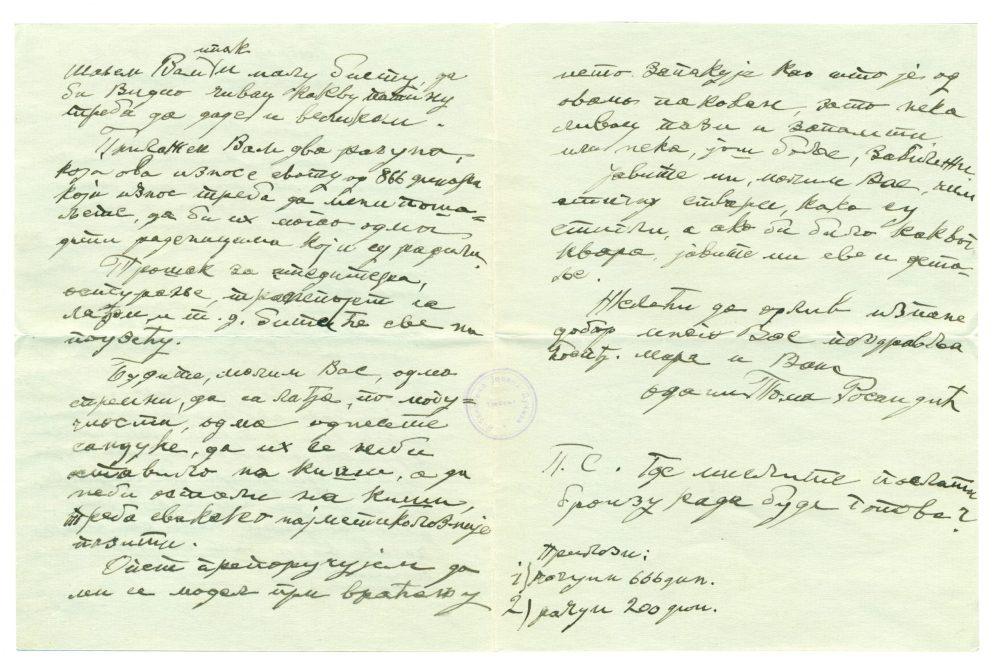 ипак
Шаљем Вам и малу бисту, да
би видио ливац какву патину
треба да даде и великом.
Прилажем Вам два рачуна,
која ова износе своту од 866 динара
који износ треба да мени поша-
љете, да би их могао одма
дати раденицима који су радили.
Трошак за шпедитера,
осигурање, транспорт са
лађом, и т. д. бити ће све на
поузеће.
Будите, молим Вас, одма
спремни, да са лађе, по могу-
ћности, одма однесете
сандуке, да их се неби
оставило на киши, а да
неби остали на киши,
треба свакако најметикулозније
пазити.
Опет препоручујем да
ми се модел при враћању
исто запакује као што је од
овамо пакован, зато нека
ливац пази и запамти
или нека, још боље, забиљежи.
Јавите ми, молим Вас, чим
стигну ствари, како су
стигли, а ако би било каквог
квара, јавите ми све и дета-
ље.
Желећи да одлив испане
добар много Вас поздравља
Мара и Ваш
одани Тома Росандић
П. С. Где мислите послати
бронзу када буде готова?
Прилози:
1) рачун 666 дин.
2) рачун 200 дин.